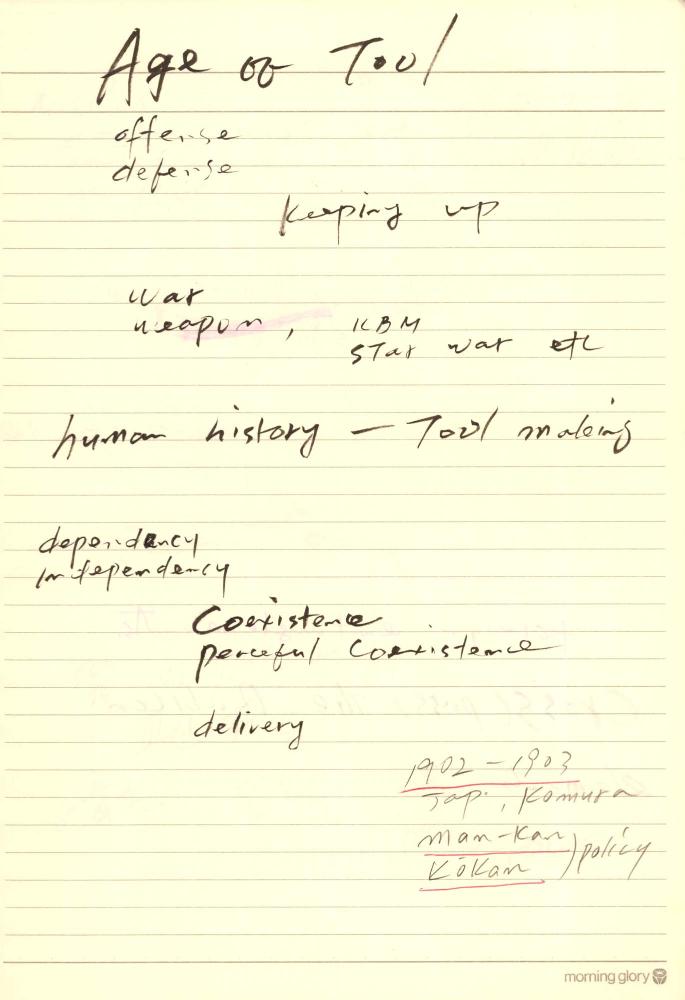 Age of Tool
offense
defense
Keeping up
war
weapon, ICBM
Star war etc
human history — Tool making
dependency
independency
Coexistence
peaceful Coexistence
delivery
1902 - 1903
Jap., Komura
Man-Kan
Kōkan ) policy
morning glory